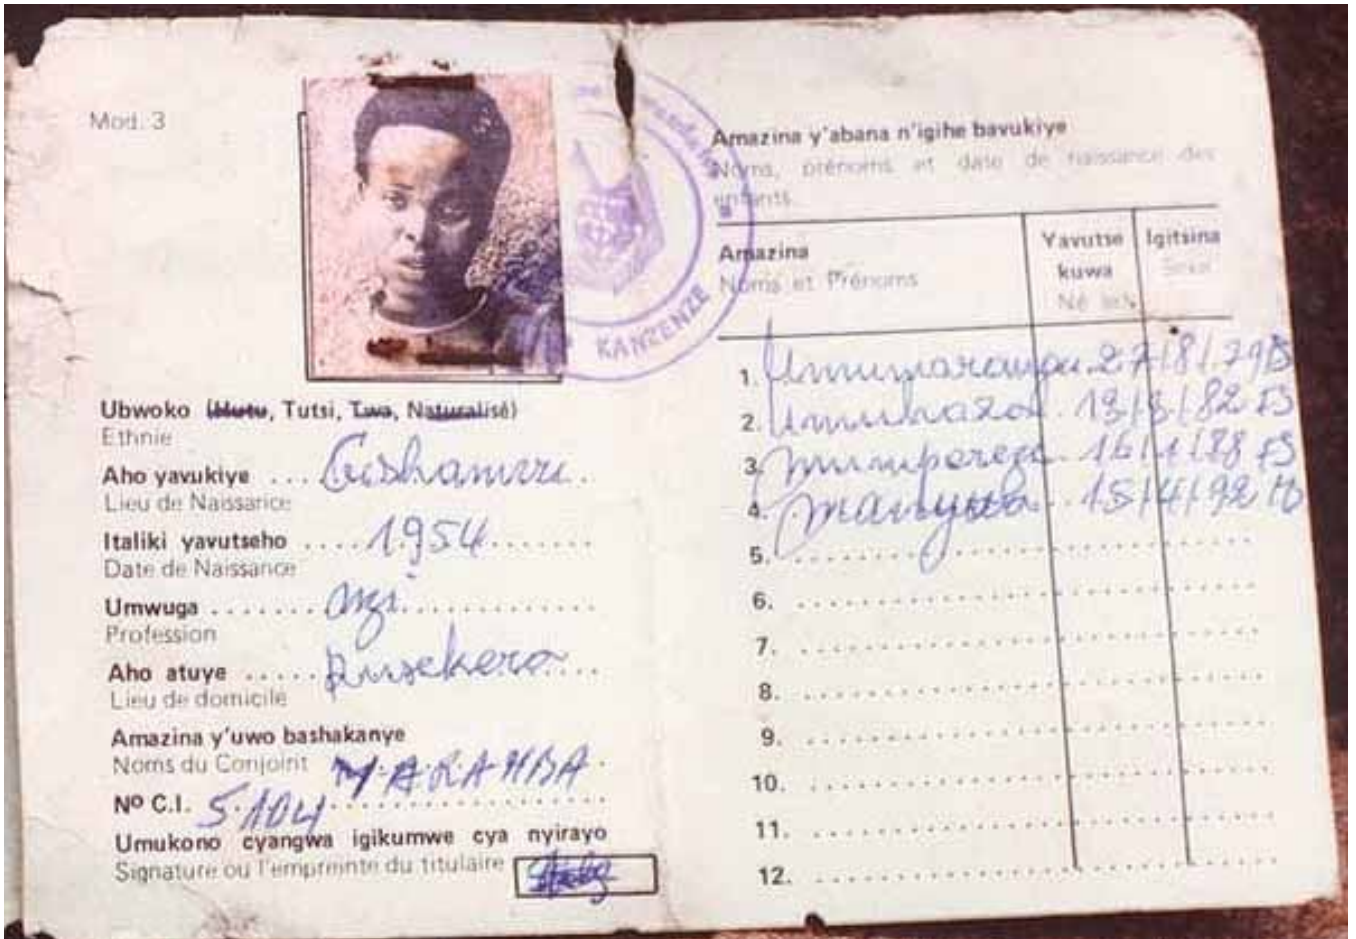 Mod. 3
KANZENZE
Ubwoko (Hutu, Tutsi, Twa, Naturalisé)
Ethnie
Aho yavukiye ... Gishamvu
Lieu de Naissance
Italiki yavutseho .... 1954
Date de Naissance
Umwuga
Profession
Aho atuye ..... Rusekera
Lieu de domicile
Amazina y'uwo bashakanye
Noms du Conjoint MARAMBA
Nº C.I. 5.104
Umukono cyangwa igikumwe cya nyirayo
Signature ou l'empreinte du titulaire
Amazina y'abana n'igihe bavukiye
Noms, prénoms et date de naissance des
enfants
Amazina Yavutse Igitsina
Noms et Prénoms kuwa Sexe
Né le
1. 27/8/79
2. 82
3. 16/1/88
4. 15/4/92
5.
6.
7.
8.
9.
10.
11.
12.